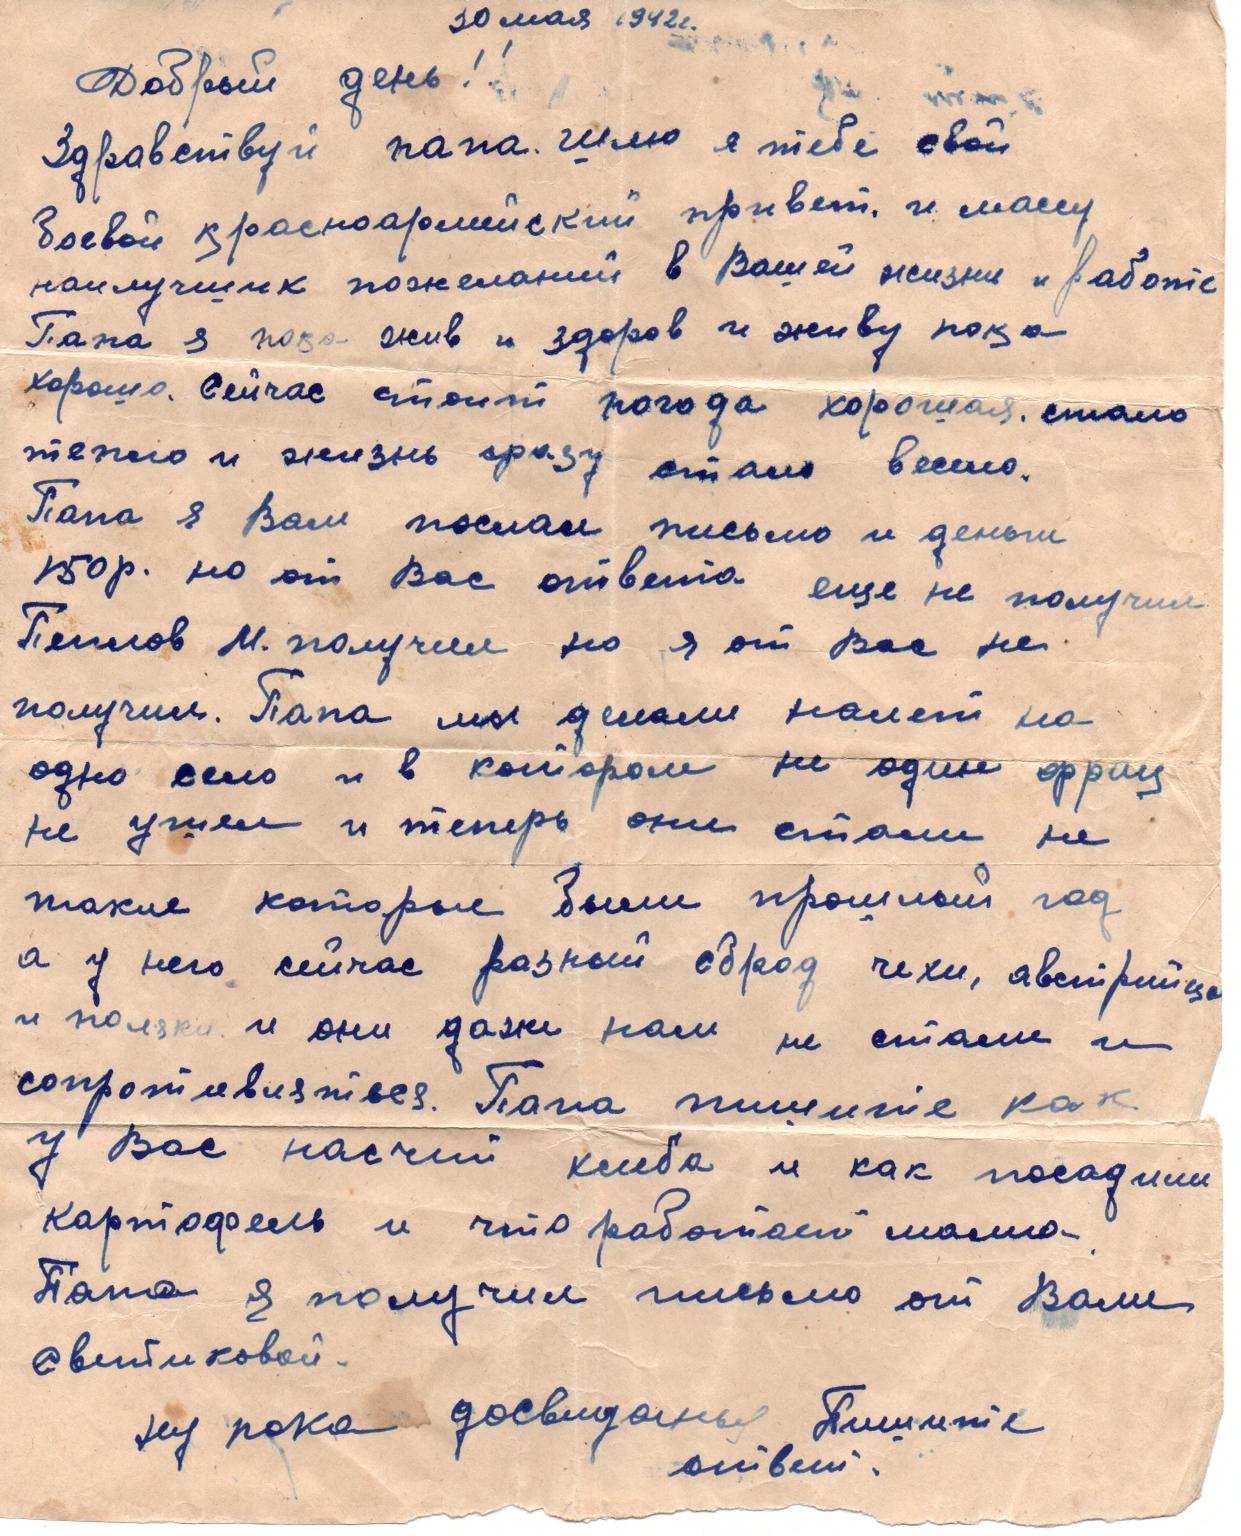 30 мая 1942г.
Добрый день!!
Здравствуй папа. шлю я тебе свой
боевой красноармейский привет. и массу
наилучших пожеланий в Вашей жизни и работе
Папа я пока жив и здоров и живу пока
хорошо. Сейчас стоит погода хорошая. стало
тепло и жизнь сразу стало весело.
Папа я Вам послал письмо и деньги
150р. но от Вас ответа еще не получил
М. получил но я от Вас не
получил. Папа мы делали налет на
одно село и в котором не один фриц
не ушел и теперь они стали не
такие которые были прошлый год
а у него сейчас разный сброд чехи, австрийцы
и поляки и они даже нам не стали и
сопротивляться. Папа пишите как
у Вас насчет хлеба и как посадили
картофель и что работает мама.
Папа я получил письмо от Вали
Светиковой.
ну пока досвиданья Пишите
ответ.